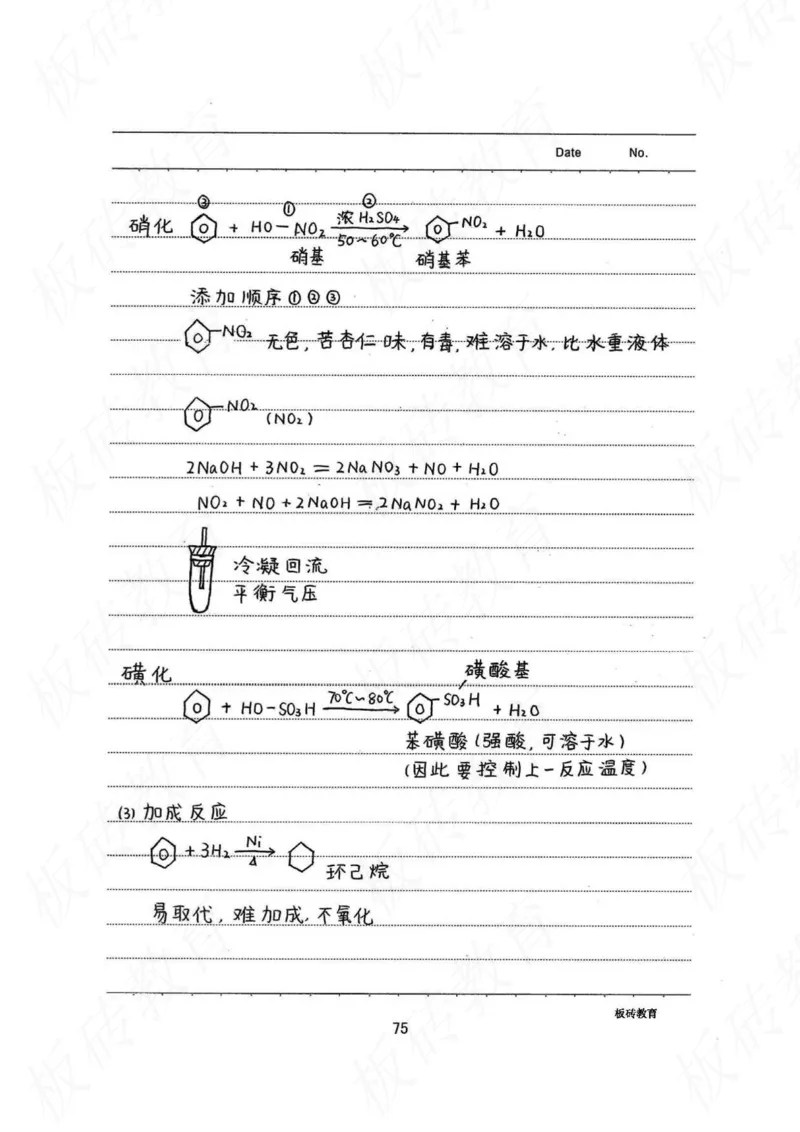 Date No.
③ ① ②
硝化 + HO-NO₂ 浓H₂SO₄ 50~60℃ → NO₂ + H₂O
硝基 硝基苯
添加顺序①②③
NO₂ 无色,苦杏仁味,有毒,难溶于水.比水重液体
NO₂ (NO₂)
2NaOH + 3NO₂ = 2NaNO₃ + NO + H₂O
NO₂ + NO + 2NaOH = 2NaNO₂ + H₂O
冷凝回流
平衡气压
磺化 磺酸基
+ HO-SO₃H 70℃~80℃ → SO₃H + H₂O
苯磺酸(强酸,可溶于水)
(因此要控制上一反应温度)
(3) 加成反应
+ 3H₂ Ni △ →
环己烷
易取代,难加成.不氧化
板砖教育
75